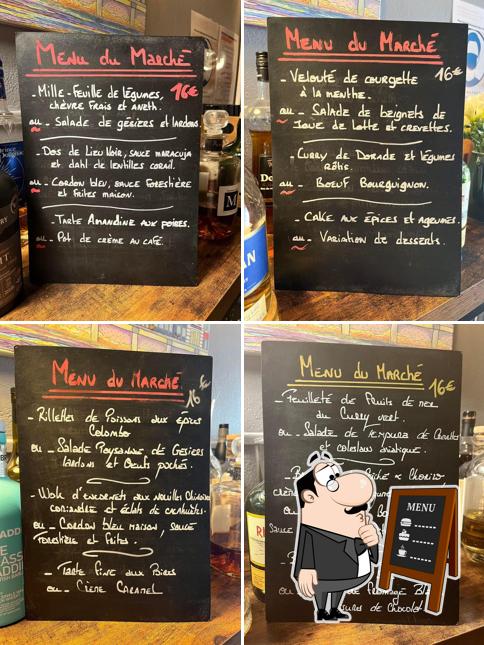 Menu du Marché
- Mille-Feuille de légumes, 16€
chèvre frais et aneth.
ou - Salade de gésiers et lardons.
- Dos de Lieu Noir, sauce maracuja
et dahl de lentilles corail.
ou - Cordon bleu, sauce Forestière
et frites maison.
- Tarte Amandine aux poires.
ou - Pot de crème au café.
Menu du Marché
- Velouté de courgette 16€
à la menthe.
ou - Salade de beignets de
Joue de Lotte et crevettes.
- Curry de Dorade et légumes
rôtis.
ou - Boeuf Bourguignon.
- Cake aux épices et agrumes.
ou - Variation de desserts.
Menu du Marché
16€
- Rillettes de Poissons aux épices
Colombo
ou - Salade Paysanne de Gésiers
lardons et Oeufs poché.
- Wok d'encornets aux nouilles Chinoises
coriandre et éclats de cacahuètes.
ou - Cordon bleu maison, sauce
forestière et frites.
- Tarte fine aux Poires
ou - Crème Caramel
Menu du Marché
16€
- Feuilleté de Fruits de mer
au Curry vert.
ou - Salade de tempura de Crevettes
et coleslaw asiatique.
Chorizo,
crème
ou
Sauce
MENU
ou
fromage
de Chocolat